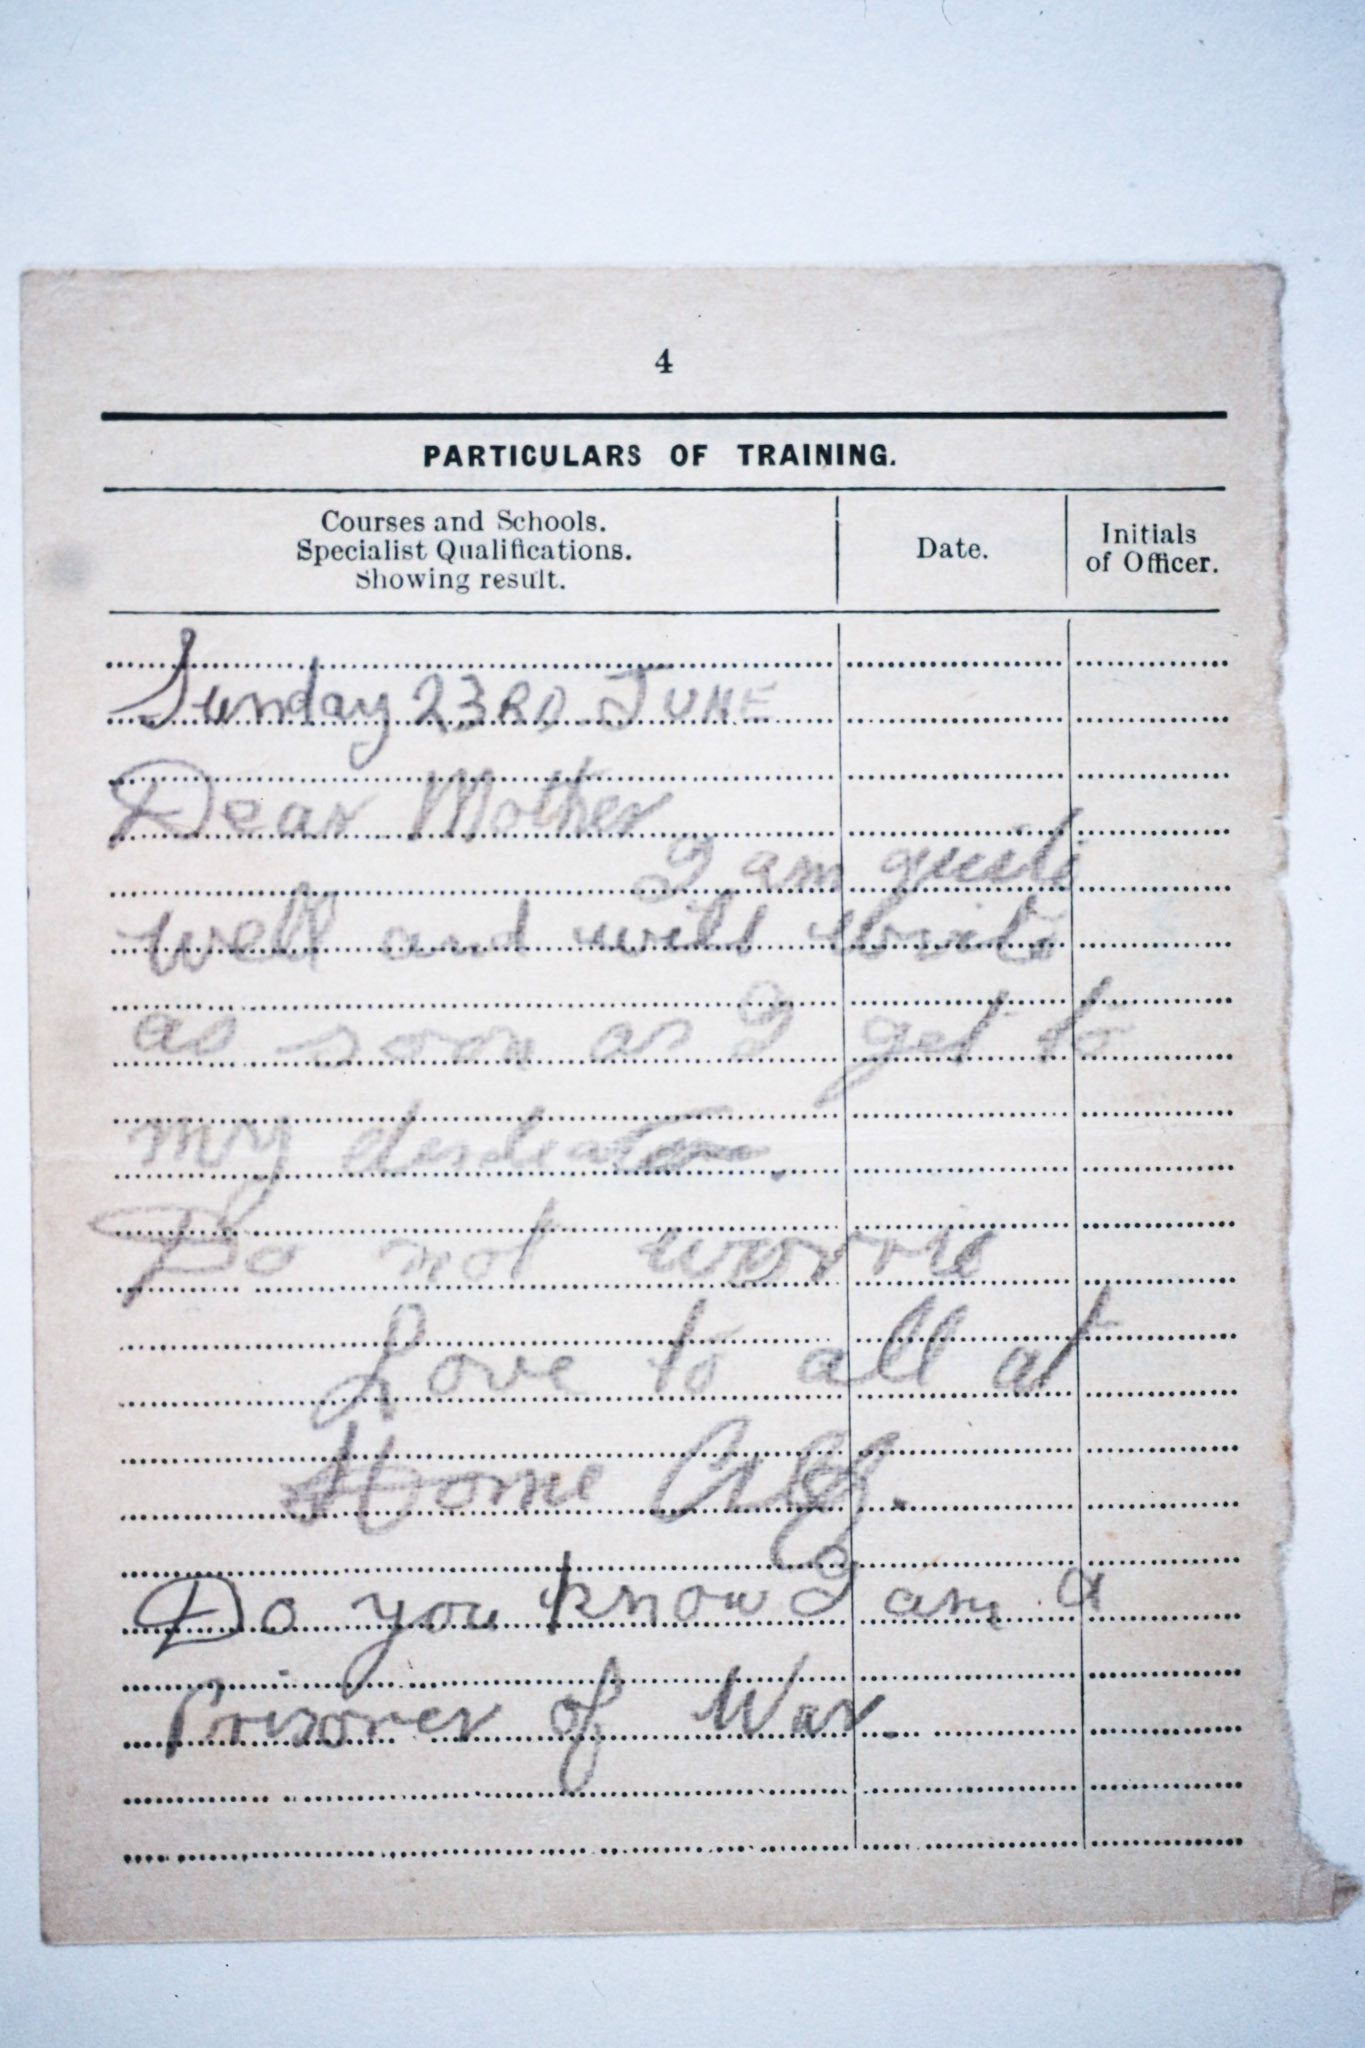 4
PARTICULARS OF TRAINING.
Courses and Schools.
Specialist Qualifications.
Showing result.
Date.
Initials
of Officer.
Sunday 23RD JUNE
Dear Mother
I am quite
well and will write
as soon as I get to
my
Do not worrie
Love to all at
Home Alf.
Do you know I am a
Prisoner of War.